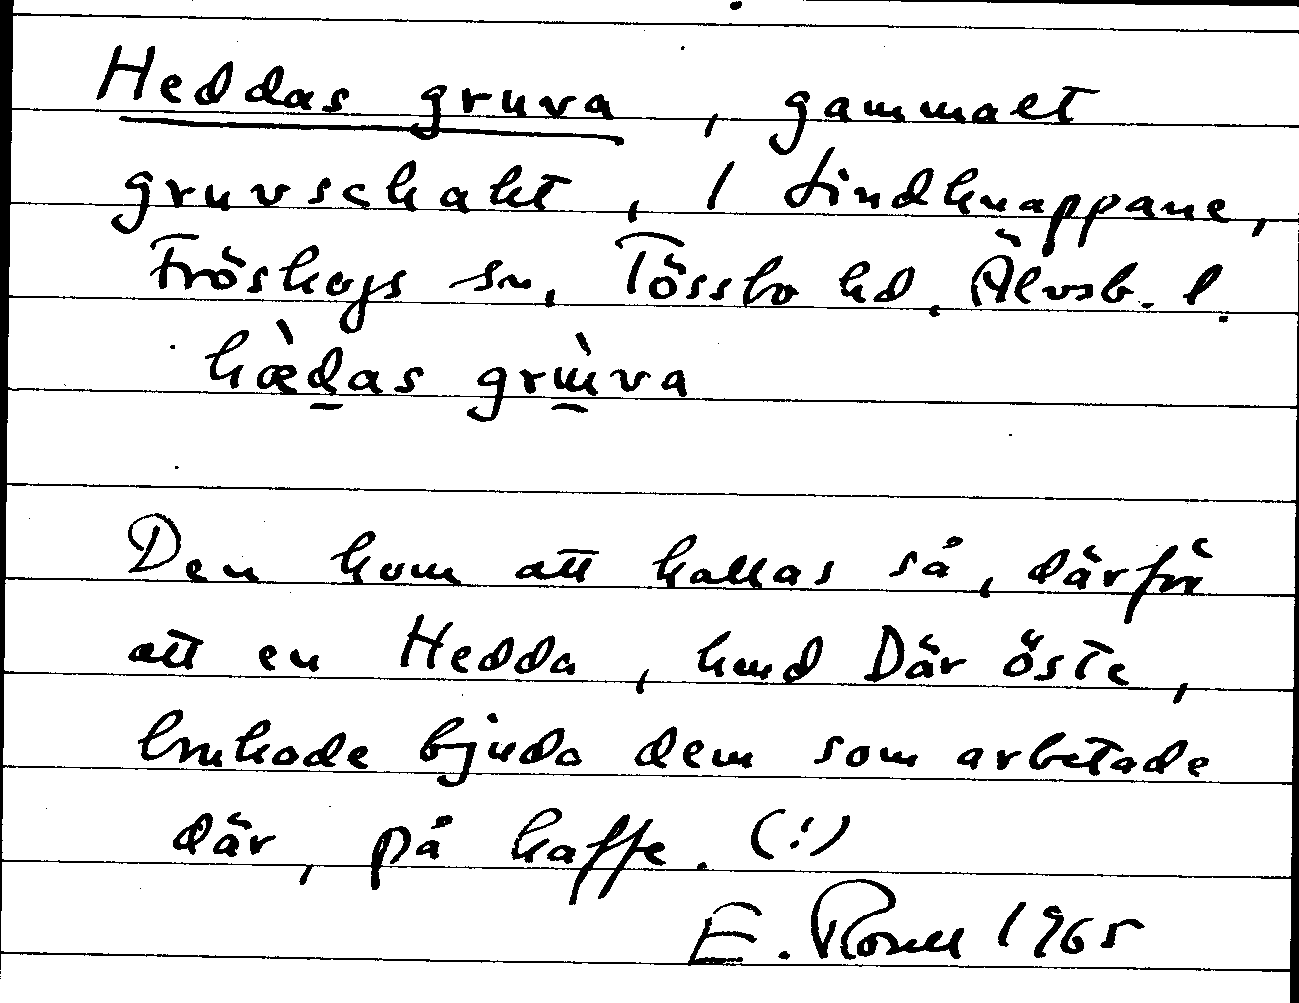 Heddas gruva, gammalt
gruvschakt, i Lindknappane,
Fröskogs sn, Tössbo hd. Älvsb. l.
hæ̀das grùva
Den kom att kallas så, därför
att en Hedda, kund Där öste,
brukade bjuda dem som arbetade
där, på kaffe. (!)
E. Rosell 1965